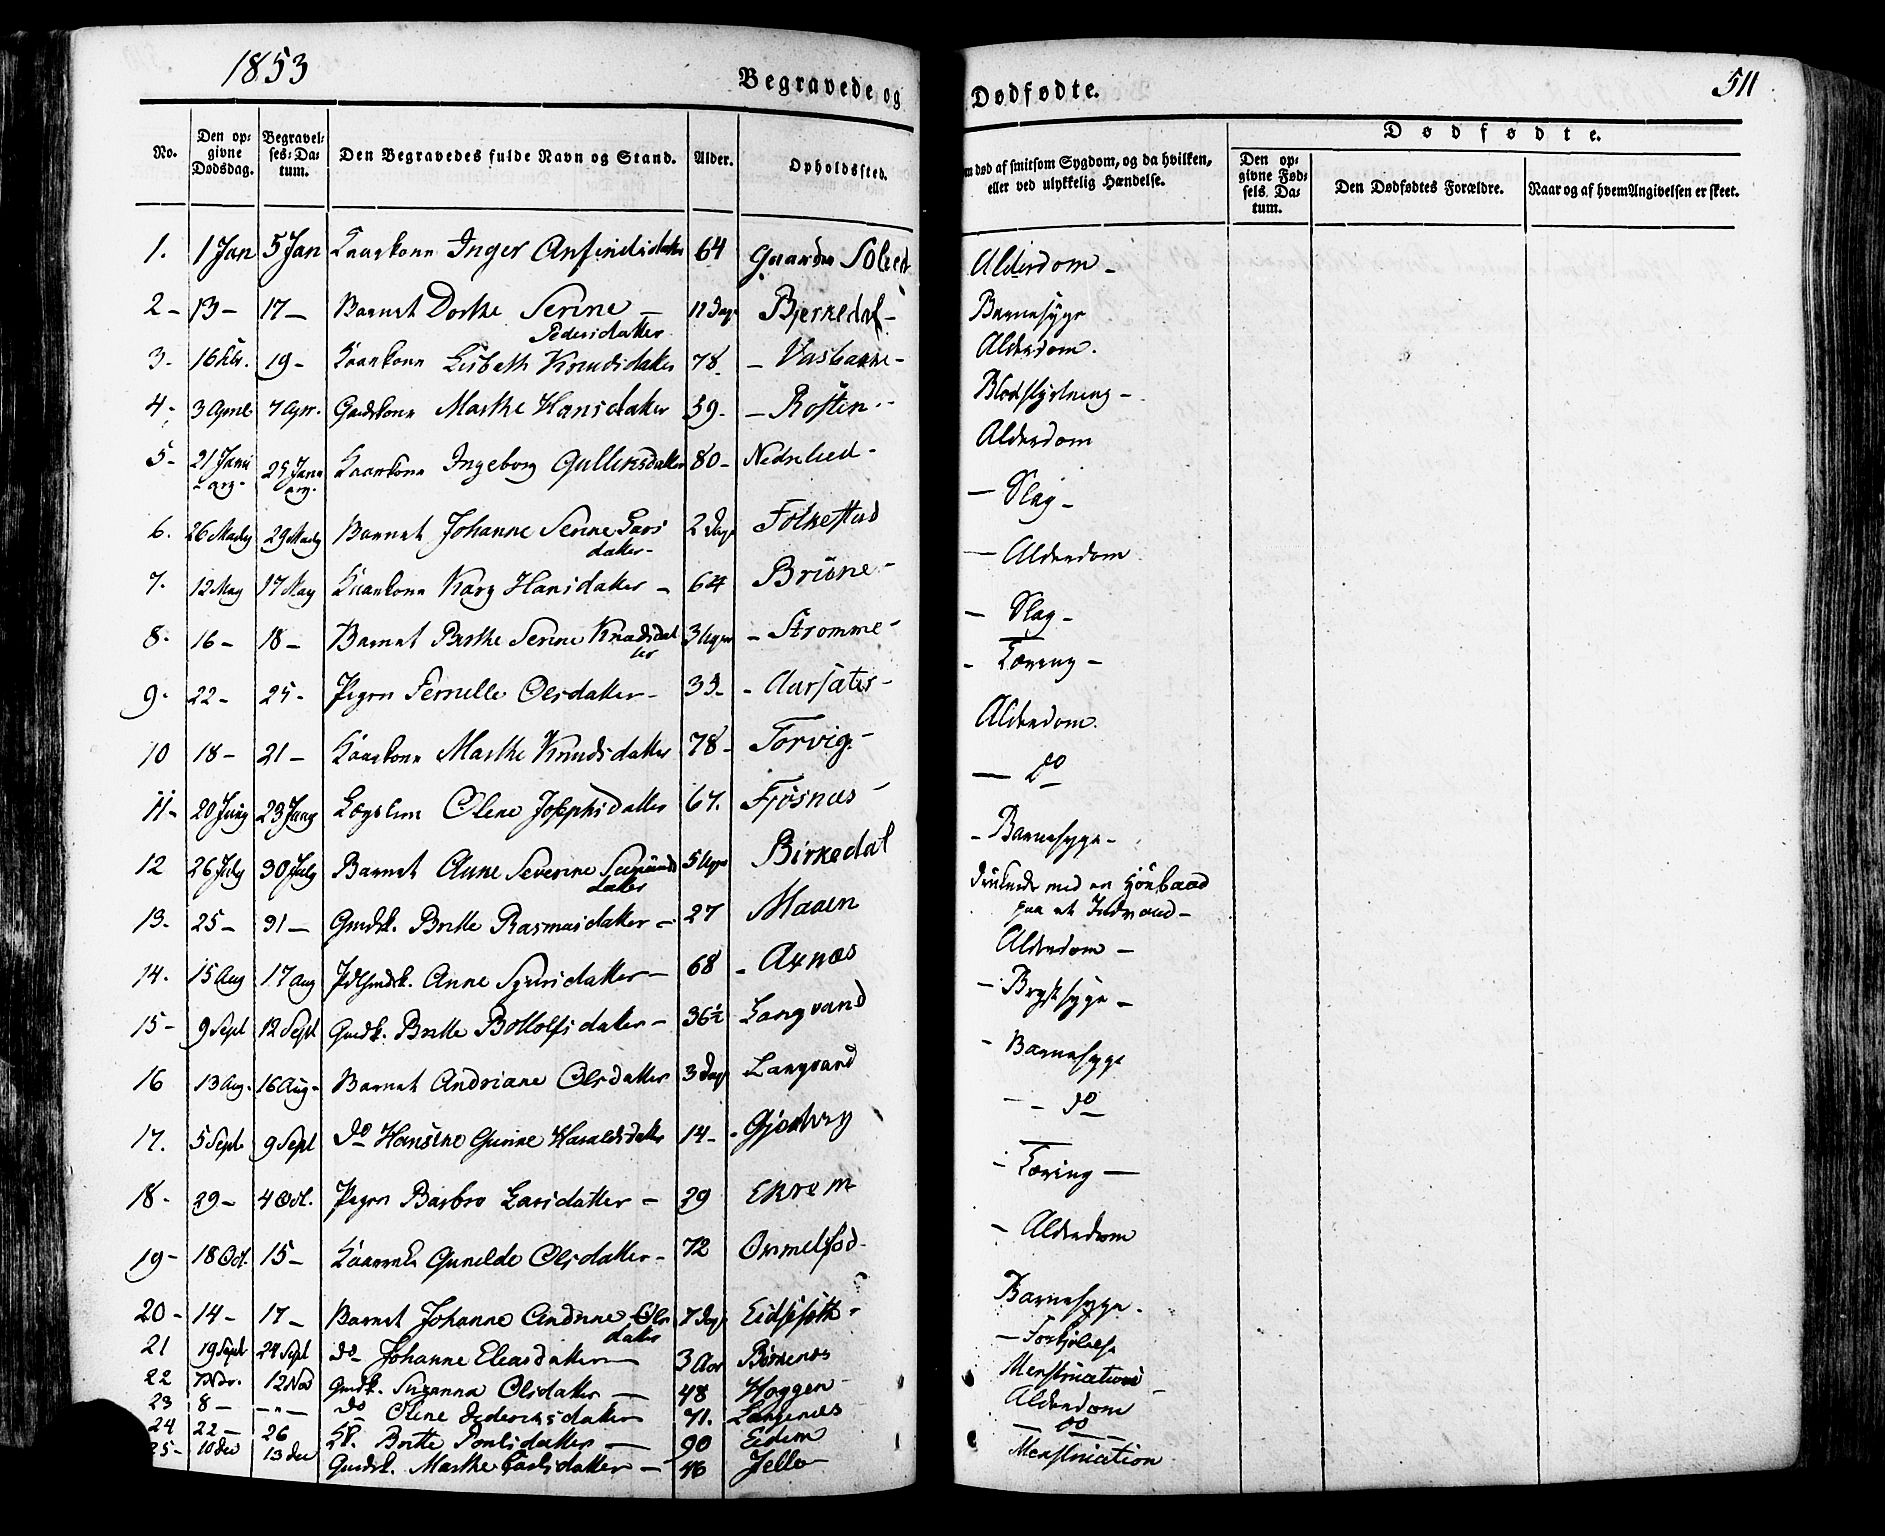 1853
Begravede og Dødfødte.
511
No.
Den opgivne Dødsdag.
Begravelses-Datum.
Den Begravedes fulde Navn og Stand.
Alder.
Opholdssted.
m død af smitsom Sygdom, og da hvilken, eller ved ulykkelig Hændelse.
Dødfødte.
Den opgivne Fødsels-Datum.
Den Dødfødtes Forældre.
Naar og af hvem Angivelsen er skeet.
1. 1 Jan 5 Jan Inger Anfindsdatter 64 Alderdom -
2 - 13 - 17 - Barnet Dorthe Serine - Pedersdatter 11 Dage Bjerkedal - Barnesyge
3 - 16 19 - Kaarkone Lisbeth Knudsdatter 78 - Alderdom.
4 - 3 April 7 Apr. Gaardkone Marthe Hansdatter 59 - - Rotten - Blodstyrtning -
5 - 21 Janu 25 Janu Kaarkone Ingeborg Gulliksdatter 80 - Nedrelied - Alderdom
6. 26 29 Barnet Johanne Serine Larsdatter - 2 Dage Folkestad - Slag -
7. 12 May 17 May Kaarkone Kary Hansdatter - 64 Brune - - Alderdom
8 - 16 - 18 - Barnet Berthe Serine Knudsdatter 3 Uger - Strømme - - Slag -
9 - 22 - 25 - Pigen Pernelle Olsdatter - 33 - - Aarsæter - - Tæring -
10 18 - 21 - Kaarkone Marthe Knudsdatter 78 - Torvig - Alderdom.
11 - 20 Juny 23 Juny Lægslem Olene Josephsdatter 67. Fjøsnæs - - do
12 26 July 30 July Barnet Anne Severine datter 5 Uger Birkedal - Barnesyge -
13. 25 - 31 - Gmdk. Britte Rasmusdatter - 27 Maaen med en paa et
14. 15 Aug 17 Aug Anne Sjursdatter - 68 - Axnæs Alderdom -
15 - 9 Sept 12 Sept Gmdk. Britte Bottolfsdatter - 36½ Langvand - Brystsyge -
16 13 Aug. 16 Aug. Barnet Andriane Olsdatter 3 Dage Langvand - Barnesyge
17. 5 Sept 9 Sept do Hansine Gurine Haraldsdatter 14 - - do
18 - 29 - 4 Oct. Pigen Barbro Larsdatter - 29 Ekrem - Tæring -
19 - 18 Oct. 15 - Gunelde Olsdatter - 72 - Alderdom
20 - 14 - 17 - Barnet Johanne Andrine Olsdatter 7 Dage Barnesyge.
21 19 Sept 24 Sept do Johanne Eleasdatter - 3 Aar - Forkjølelse
22 7 Nov. 12 Nov Gmdk. Susanna Olsdatter - 48 Hoggen - Menstruation -
23 8 - - " - do Olene Dideriksdatter 71. Langenæs Alderdom
24 22 - 26 Britte Poulsdatter - 90 Eidem - do -
25 - 10 Dec 13 Dec Gmdk. Marthe Carlsdatter - 46 Menstruation